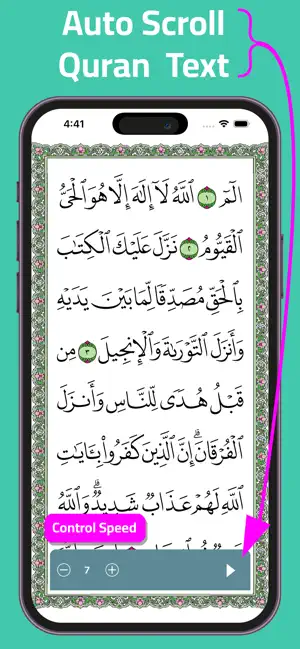 Auto Scroll
Quran Text
4:41
الٓمٓ ١ ٱللَّهُ لَآ إِلَٰهَ إِلَّا هُوَ ٱلْحَىُّ
ٱلْقَيُّومُ ٢ نَزَّلَ عَلَيْكَ ٱلْكِتَٰبَ
بِٱلْحَقِّ مُصَدِّقًا لِّمَا بَيْنَ يَدَيْهِ
وَأَنزَلَ ٱلتَّوْرَىٰةَ وَٱلْإِنجِيلَ ٣ مِن
قَبْلُ هُدًى لِّلنَّاسِ وَأَنزَلَ
ٱلْفُرْقَانَ ۗ إِنَّ ٱلَّذِينَ كَفَرُوا۟ بِـَٔايَٰتِ
ٱللَّهِ لَهُمْ عَذَابٌ شَدِيدٌ ۗ وَٱللَّهُ
Control Speed
7